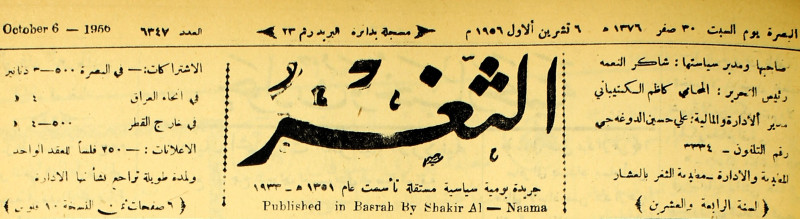 البصرة يوم السبت ٣٠ صفر ١٣٧٦ هـ ٦ تشرين الاول ١٩٥٦ م مسجلة بدائرة البريد رقم ٢٣ العدد ٦٣٤٧ October 6 — 1956
صاحبها ومدير سياستها : شاكر النعمه
رئيس التحرير : المحامي كاظم الكتيباني
مدير الادارة والمالية : علي حسين الدوغه جي
رقم التلفون - ٣٣٣٤
المطبعة والادارة - مطبعة الثغر بالعشار
( السنة الرابعة والعشرين )
الثغر
جريدة يومية سياسية مستقلة تأسست عام ١٣٥١ هـ - ١٩٣٣
Published in Basrah By Shakir Al — Naama
الاشتراكات : — في البصرة ٥٠٠-٣ دنانير
في انحاء العراق ٤ د
في خارج القطر ٥٠٠-٤ د
الاعلانات : — ٢٥٠ فلساً للعقد الواحد
ولمدة طويلة تراجع بشأنها الادارة
( ٦ صفحات ثمن النسخة ١٠ فلوس )